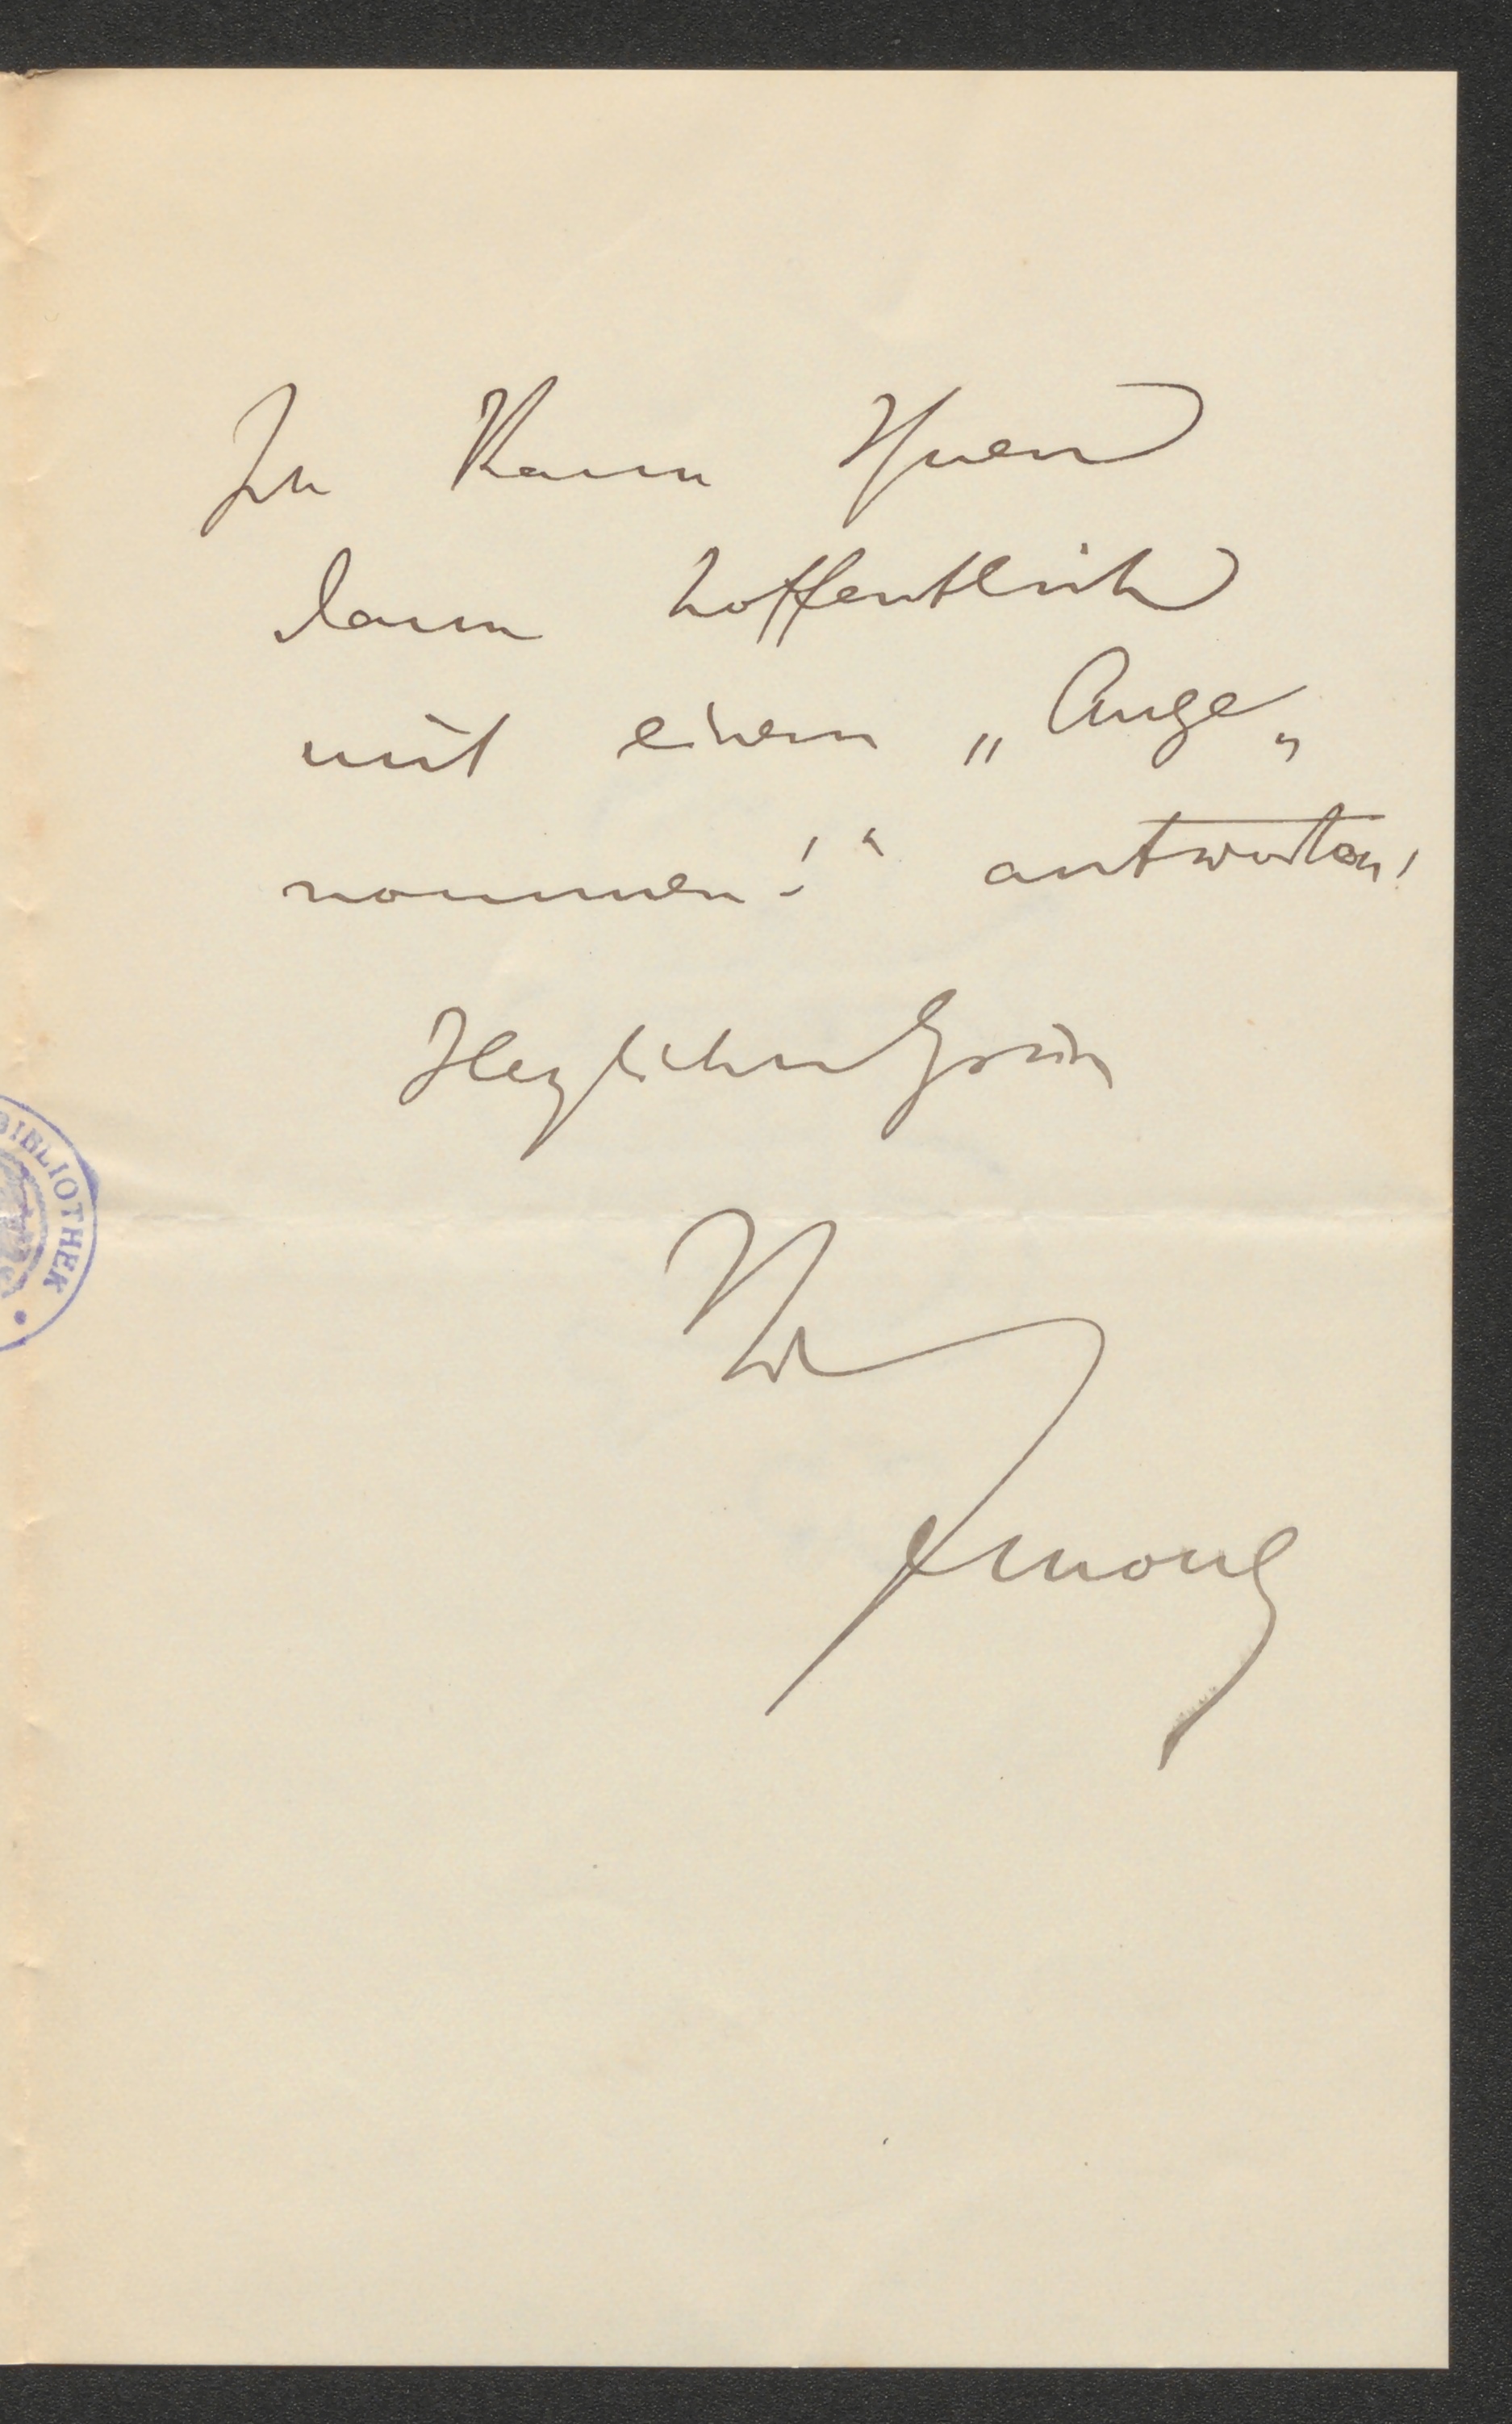 Ich kann Ihnen
dann hoffentlich
mit einem „Ange„
nommen!“ antworten!
Herzlichen Gruß
Ihr
BIBLIOTHEK